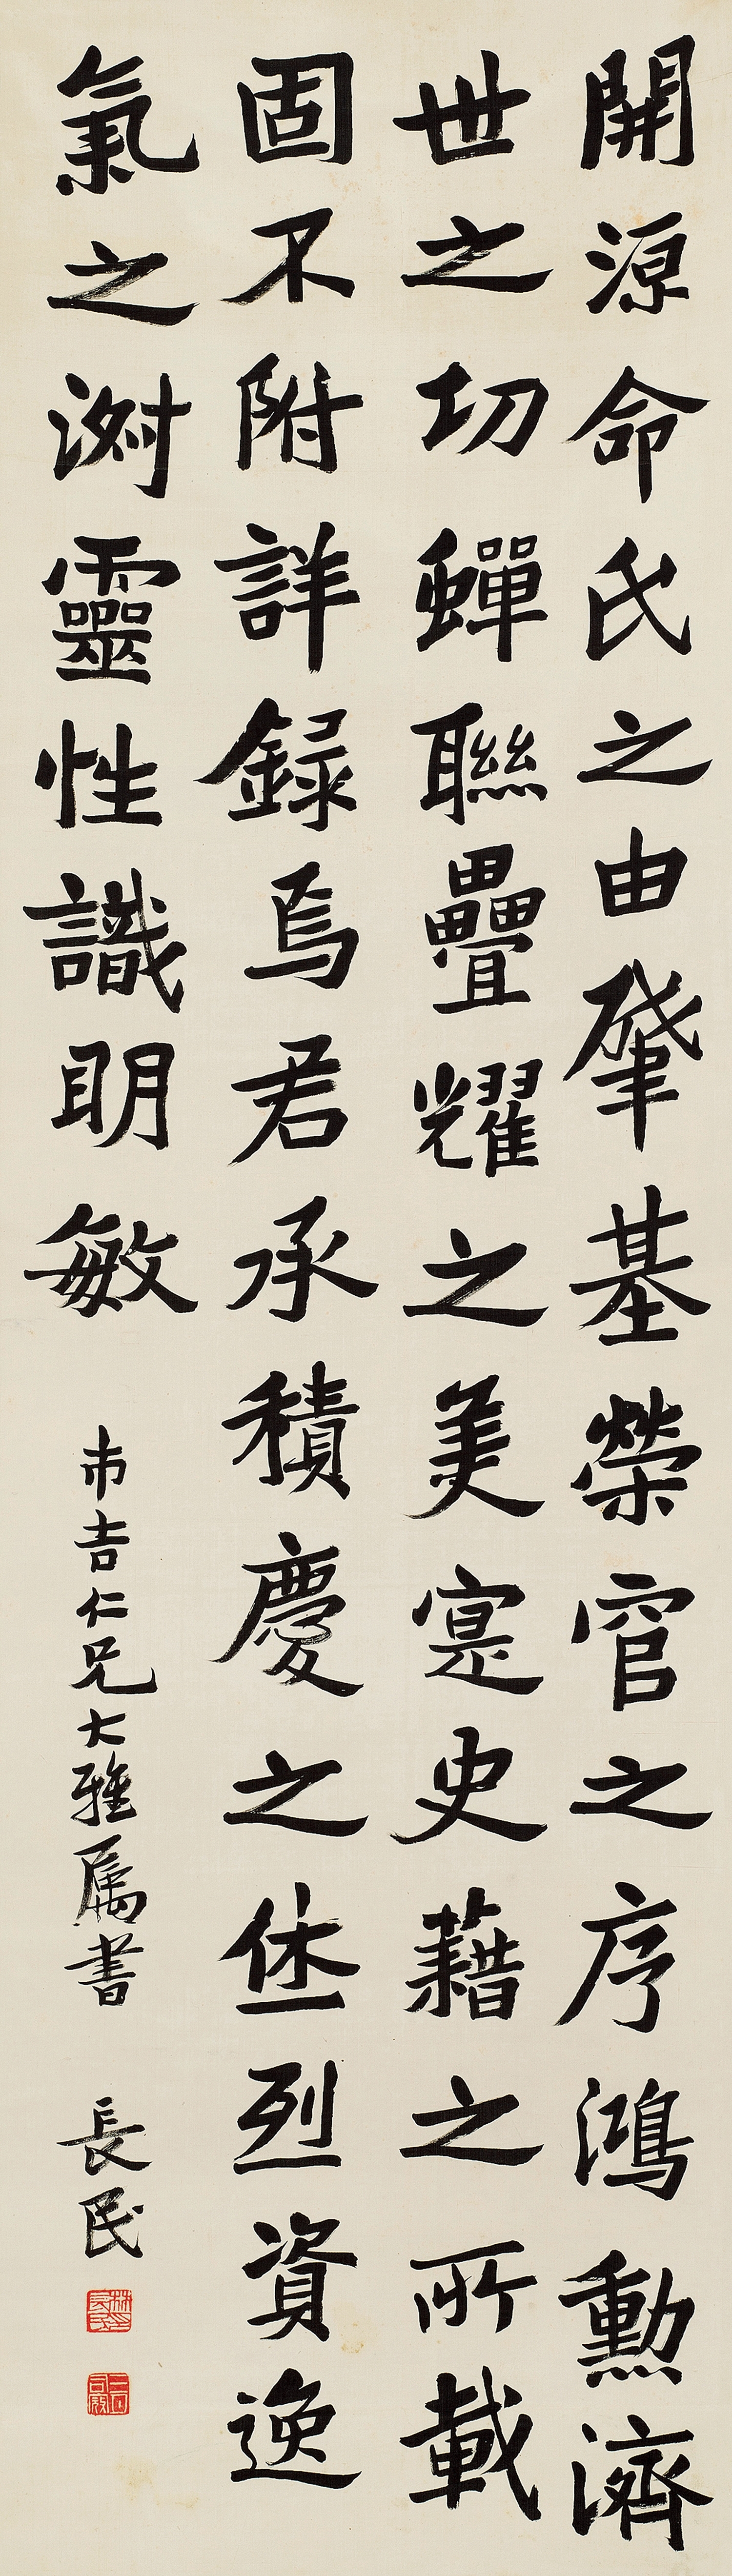 開源命氏之由肇基榮官之序鴻勳濟
世之功蟬聯疊耀之美寔史藉之所載
固不附詳録焉君承積慶之烋烈資逸
氣之渕靈性識明敏
市吉仁兄大雅屬書
長民
林長民印